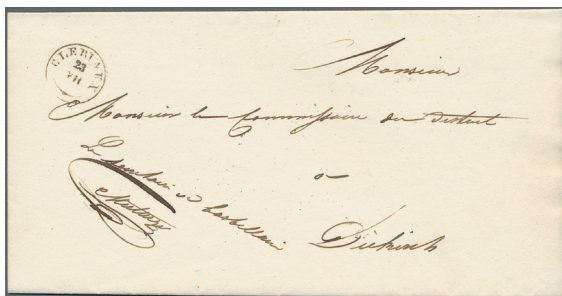 CLERVAUX
23
VII
Monsieur
Monsieur le Commissaire du District
a
Diekirch
Le